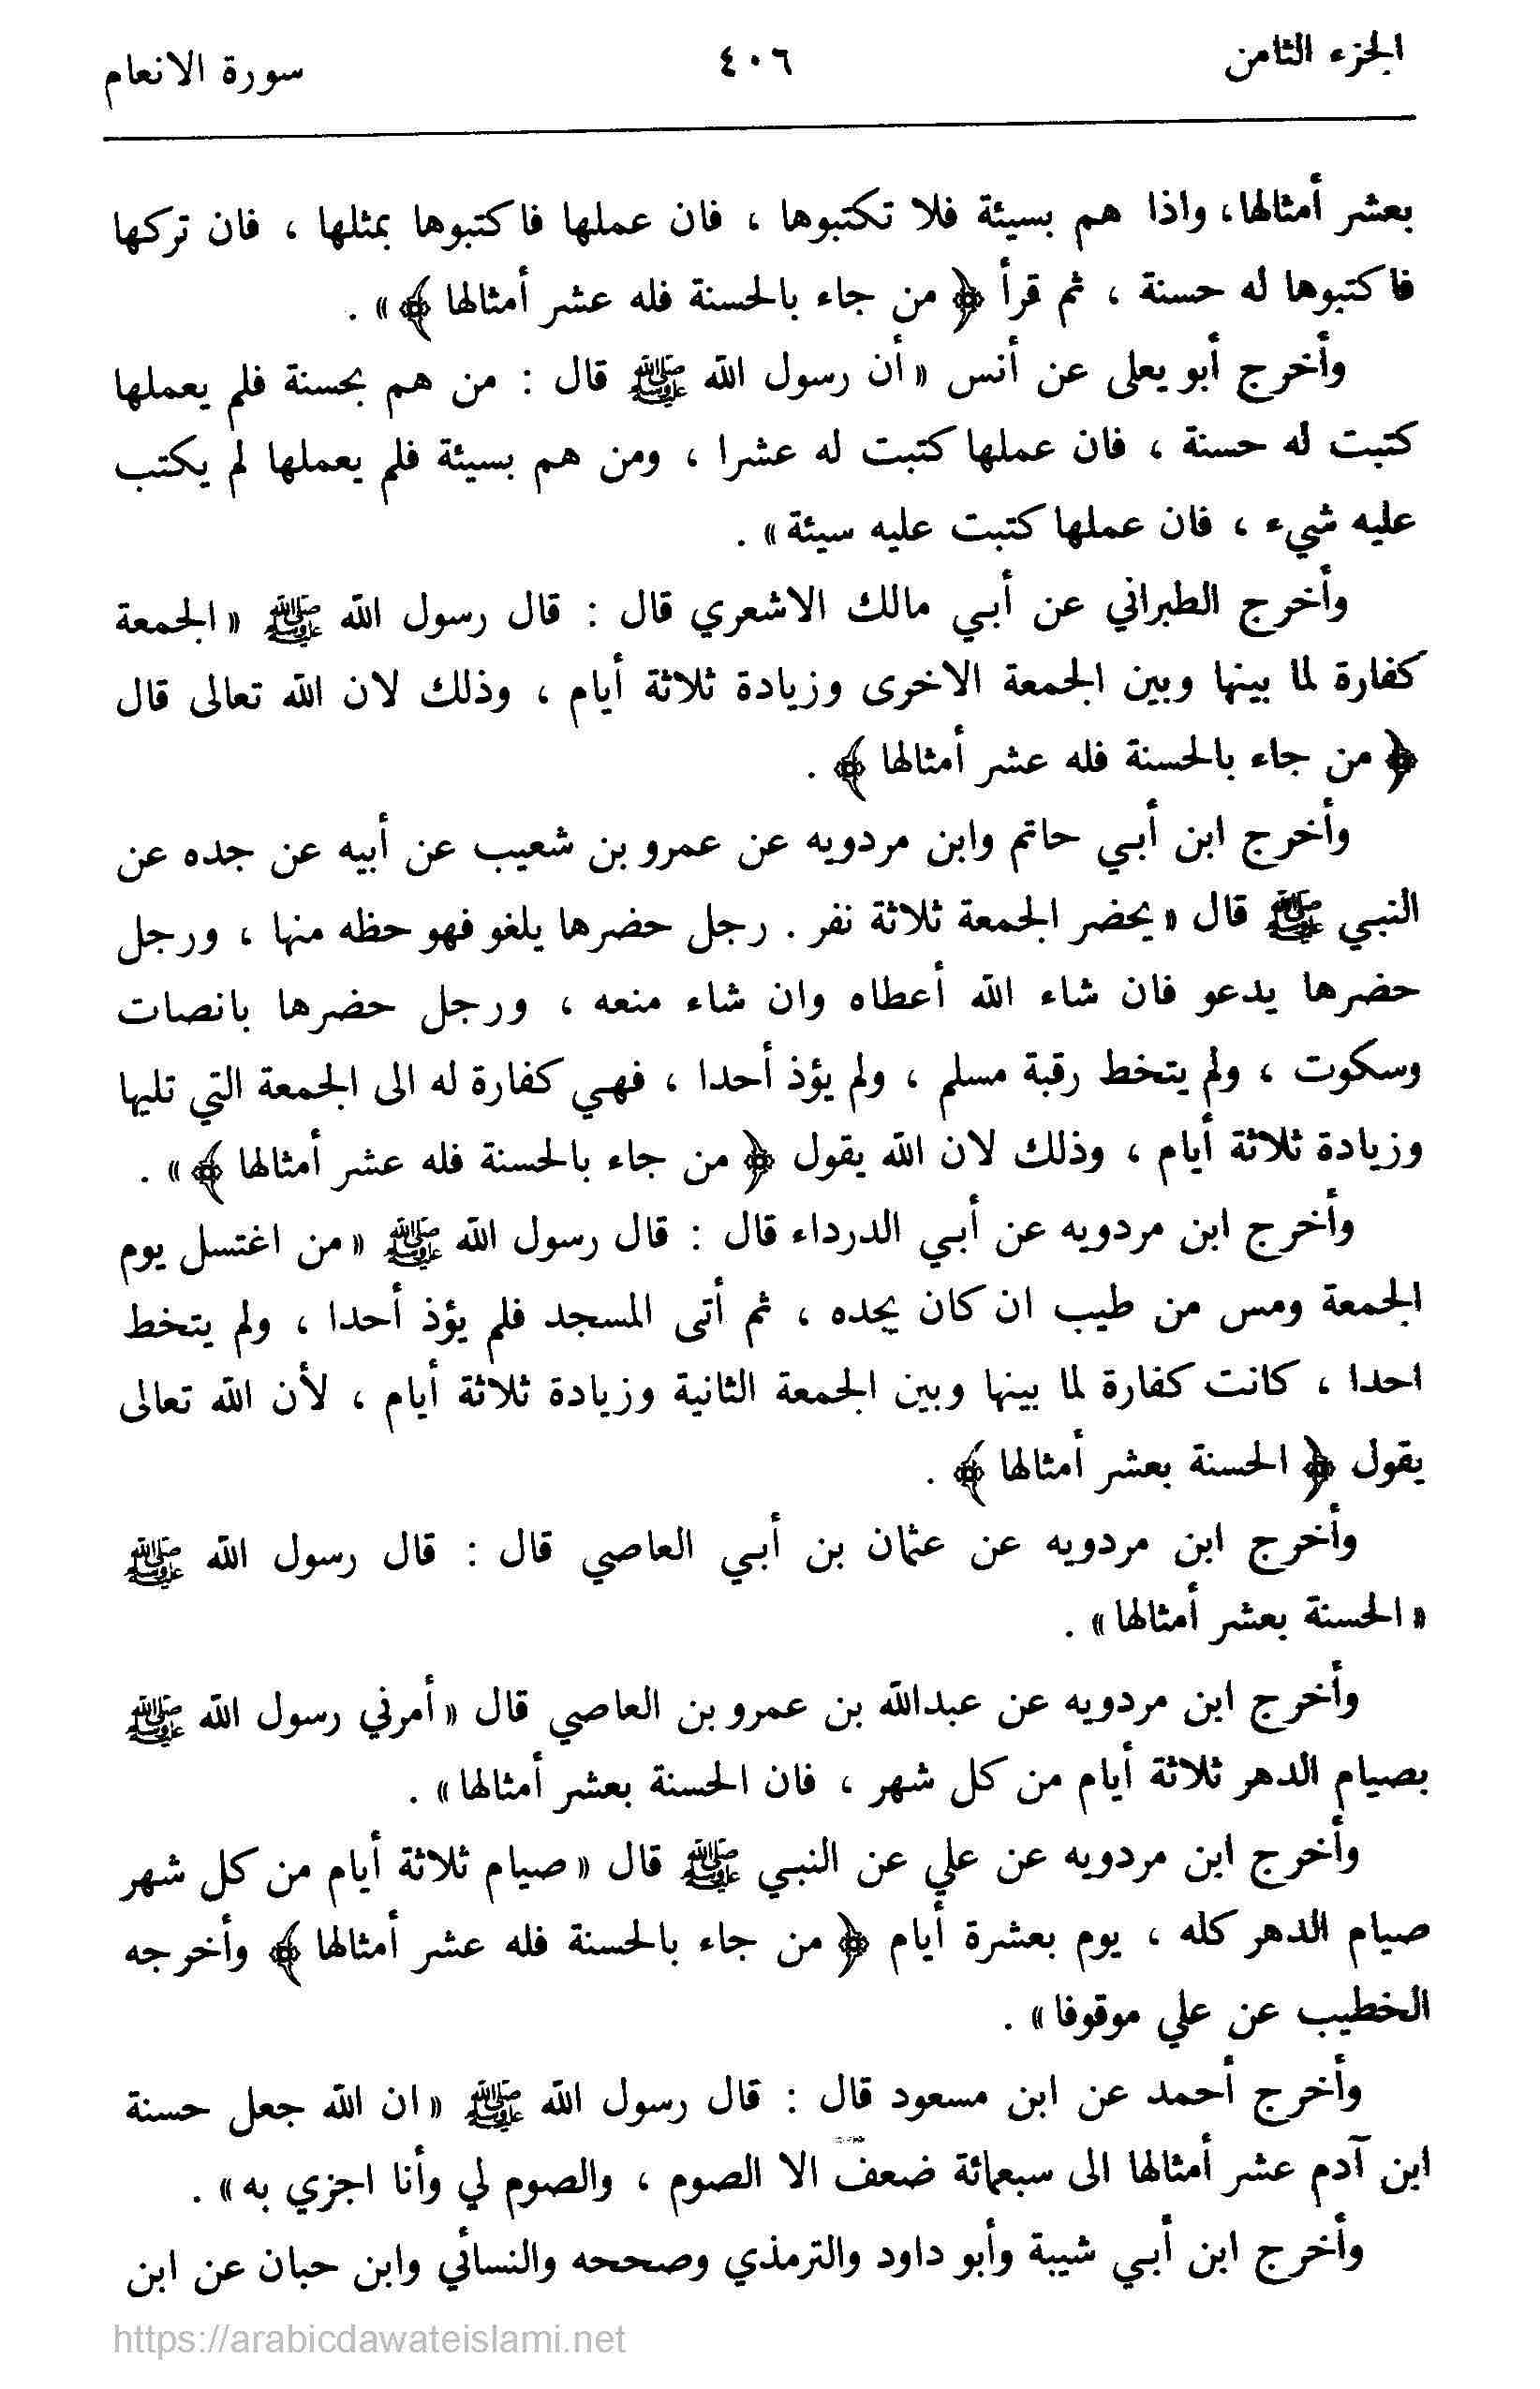 الجزء الثامن
٤٠٦
سورة الانعام
بعشر أمثالها، واذا هم بسيئة فلا تكتبوها ، فان عملها فاكتبوها بمثلها ، فان تركها
فاكتبوها له حسنة ، ثم قرأ ﴿ من جاء بالحسنة فله عشر أمثالها ﴾ » .
وأخرج أبو يعلى عن أنس « أن رسول الله ﷺ قال : من هم بحسنة فلم يعملها
كتبت له حسنة ، فان عملها كتبت له عشرا ، ومن هم بسيئة فلم يعملها لم يكتب
عليه شيء ، فان عملها كتبت عليه سيئة » .
وأخرج الطبراني عن أبي مالك الاشعري قال : قال رسول الله ﷺ « الجمعة
كفارة لما بينها وبين الجمعة الاخرى وزيادة ثلاثة أيام ، وذلك لان الله تعالى قال
﴿ من جاء بالحسنة فله عشر أمثالها ﴾ .
وأخرج ابن أبي حاتم وابن مردويه عن عمرو بن شعيب عن أبيه عن جده عن
النبي ﷺ قال « يحضر الجمعة ثلاثة نفر . رجل حضرها يلغو فهو حظه منها ، ورجل
حضرها يدعو فان شاء الله أعطاه وان شاء منعه ، ورجل حضرها بانصات
وسكوت ، ولم يتخط رقبة مسلم ، ولم يؤذ أحدا ، فهي كفارة له الى الجمعة التي تليها
وزيادة ثلاثة أيام ، وذلك لان الله يقول ﴿ من جاء بالحسنة فله عشر أمثالها ﴾ » .
وأخرج ابن مردويه عن أبي الدرداء قال : قال رسول الله ﷺ « من اغتسل يوم
الجمعة ومس من طيب ان كان يجده ، ثم أتى المسجد فلم يؤذ أحدا ، ولم يتخط
احدا ، كانت كفارة لما بينها وبين الجمعة الثانية وزيادة ثلاثة أيام ، لأن الله تعالى
يقول ﴿ الحسنة بعشر أمثالها ﴾ .
وأخرج ابن مردويه عن عثمان بن أبي العاصي قال : قال رسول الله ﷺ
« الحسنة بعشر أمثالها » .
وأخرج ابن مردويه عن عبدالله بن عمرو بن العاصي قال « أمرني رسول الله ﷺ
بصيام الدهر ثلاثة أيام من كل شهر ، فان الحسنة بعشر أمثالها » .
وأخرج ابن مردويه عن علي عن النبي ﷺ قال « صيام ثلاثة أيام من كل شهر
صيام الدهر كله ، يوم بعشرة أيام ﴿ من جاء بالحسنة فله عشر أمثالها ﴾ وأخرجه
الخطيب عن علي موقوفا » .
وأخرج أحمد عن ابن مسعود قال : قال رسول الله ﷺ « ان الله جعل حسنة
ابن آدم عشر أمثالها الى سبعمائة ضعف الا الصوم ، والصوم لي وأنا اجزي به » .
وأخرج ابن أبي شيبة وأبو داود والترمذي وصححه والنسائي وابن حبان عن ابن
https://arabicdawateislami.net